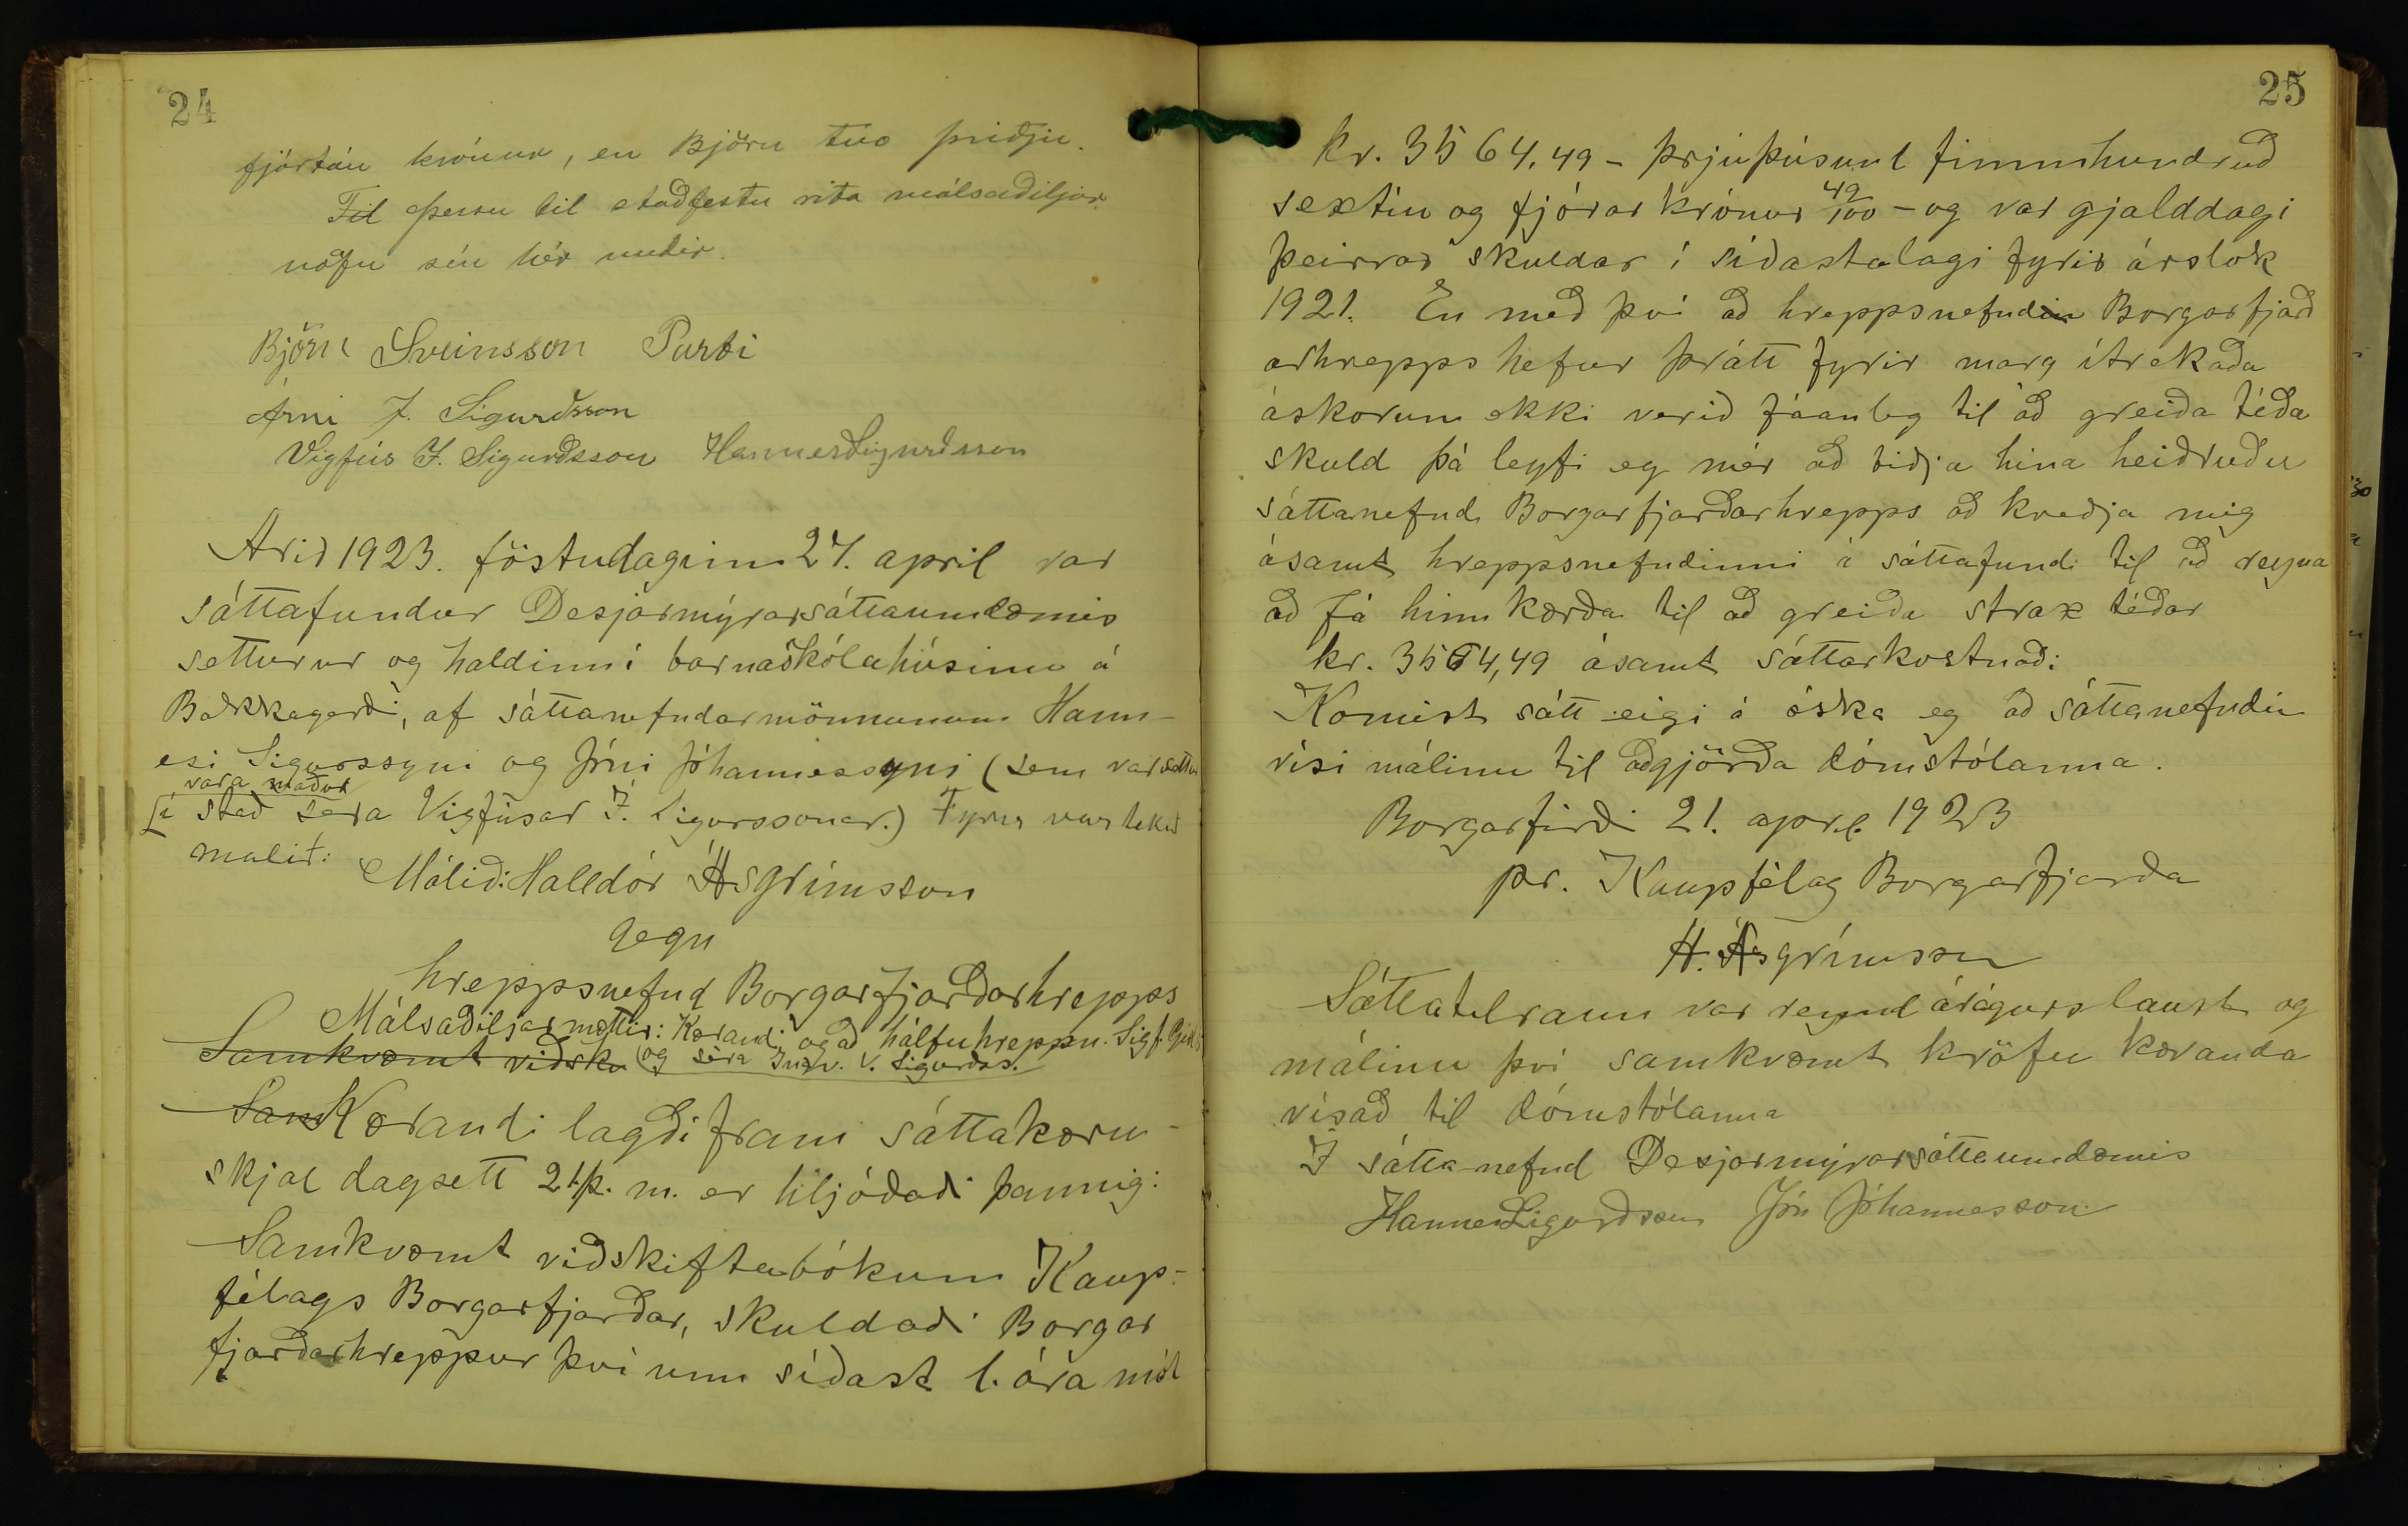 24
fjórtán krónur, en Björn tvo þriðju.
Til Þessu til staðfestu rita málsaðiljar
nöfn sín hér undir.
Björn Sveinsson Parti
Árni J. Sigurðsson
Vigfús I. Sigurðsson Hannes Sigurðsson
Arið 1923. föstudaginn 27. april var
sáttafundur Desjarmýrarsáttaumdæmis
settur ur og haldinn í barnaskólahúsinu á
Bakkagerði, af sáttanefndarmönnunum Hann-
esi Sigurssyni og Jóni Jóhannessyni (sem var settur
vara maður
í stað séra Vigfúsar I. Sigurssonar.) Fyrir var tekið
malið:
Málið: Halldór Ásgrímsson
gegn
hreppsnefnd Borgarfjarðarhrepps
Málsaðiljar mættir: Kærandi, og að hálfu hreppsn. Sigf.
Samkvæmt viðsk og séra Ingv. V. Sigurðss.
Sam Kærandi lagði fram sáttakæru-
skjal dagsett 21. þ. m. er hljóðaði þannig:
Samkvæmt viðskiftabókum Kaup-
félags Borgarfjarðar, skuldaði Borgar
fjarðarhreppur því um síðast l. ára mót
25
kr. 3564.49 - þrjúþúsund fimmhundruð
sextíu og fjórar krónur 49/100 - og var gjalddagi
þeirrar skuldar í síðastalagi fyrir árslok
1921. En með því að hreppsnefndin Borgarfjarð
arhrepps hefur þrátt fyrir marg ítrekaða
áskorun ekki verið fáanleg til að greiða téða
skuld þá leyfi eg mér að biðja hina heiðruðu
sáttanefnd Borgarfjarðarhrepps að kveðja mig
ásamt hreppsnefndinni á sáttafund til að reyna
að fá hinn kærða til að greiða strax téðar
kr. 3564,49 ásamt sáttarkostnaði
Komist sátt eigi á óska eg að sáttanefndin
vísi málinu til aðgjörða dómstólanna.
Borgarfirði 21. april 1923
pr. Kaupfélag Borgarfjarða
H. Ásgrímsson
Sáttatilraun var reynd árágurslaust og
málinu því samkvæmt kröfu kæranda
vísað til dómstólanna
I sáttanefnd Desjarmýrarsáttaumdæmis
Hannes Sigurðsson Jón Jóhannesson